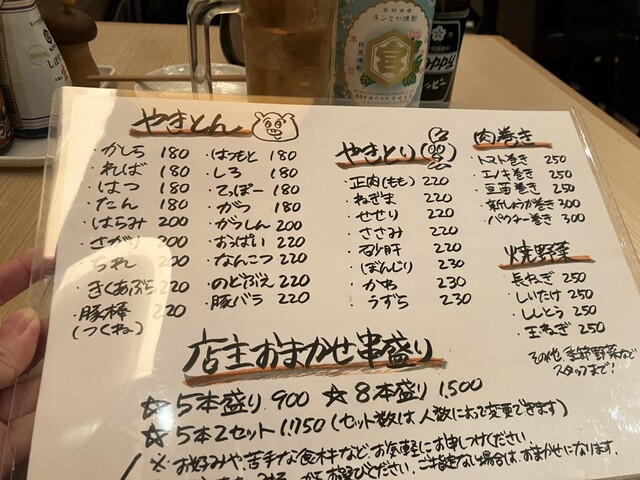 キンミヤ焼酎
宮
やきとん
・かしら 180
・ればー 180
・はつ 180
・たん 180
・はらみ 200
・さがり 200
・ちれ 200
・きくあぶら 220
・豚棒 220
(つくね)
・はつもと 180
・しろ 180
・てっぽー 180
・がつ 180
・がつしん 200
・おっぱい 220
・なんこつ 220
・のどぶえ 220
・豚バラ 220
やきとり
・正肉(もも) 220
・ねぎま 220
・せせり 220
・ささみ 220
・砂肝 220
・ぼんじり 230
・かわ 230
・うずら 230
肉巻き
・トマト巻き 250
・エノキ巻き 250
・豆苗巻き 250
・新しょうが巻き 300
・パクチー巻き 300
焼野菜
・長ねぎ 250
・しいたけ 250
・ししとう 250
・玉ねぎ 250
その他、季節野菜など
スタッフまで!
店主おまかせ串盛り
☆5本盛り 900 ☆8本盛り 1,500
☆5本2セット 1,750 (セット数は人数によって変更できます)
※お好みや苦手な食材など、お気軽にお申しつけください
お選びください。ご指定ない場合は、おまかせになります。